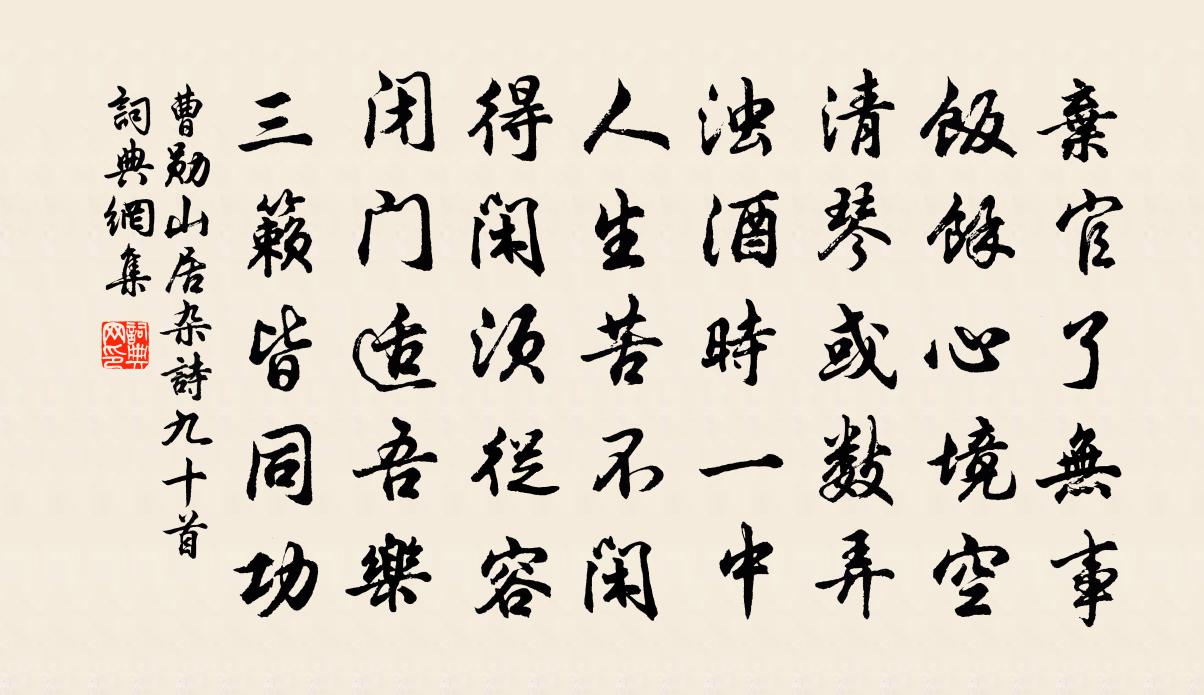 棄官了無事
飯餘心境空
清琴或数弄
浊酒時一中
人生苦不闲
得闲须從容
闭门适吾樂
三籁皆同功
曹勋山居杂詩九十首
詞典網集
詞典网印